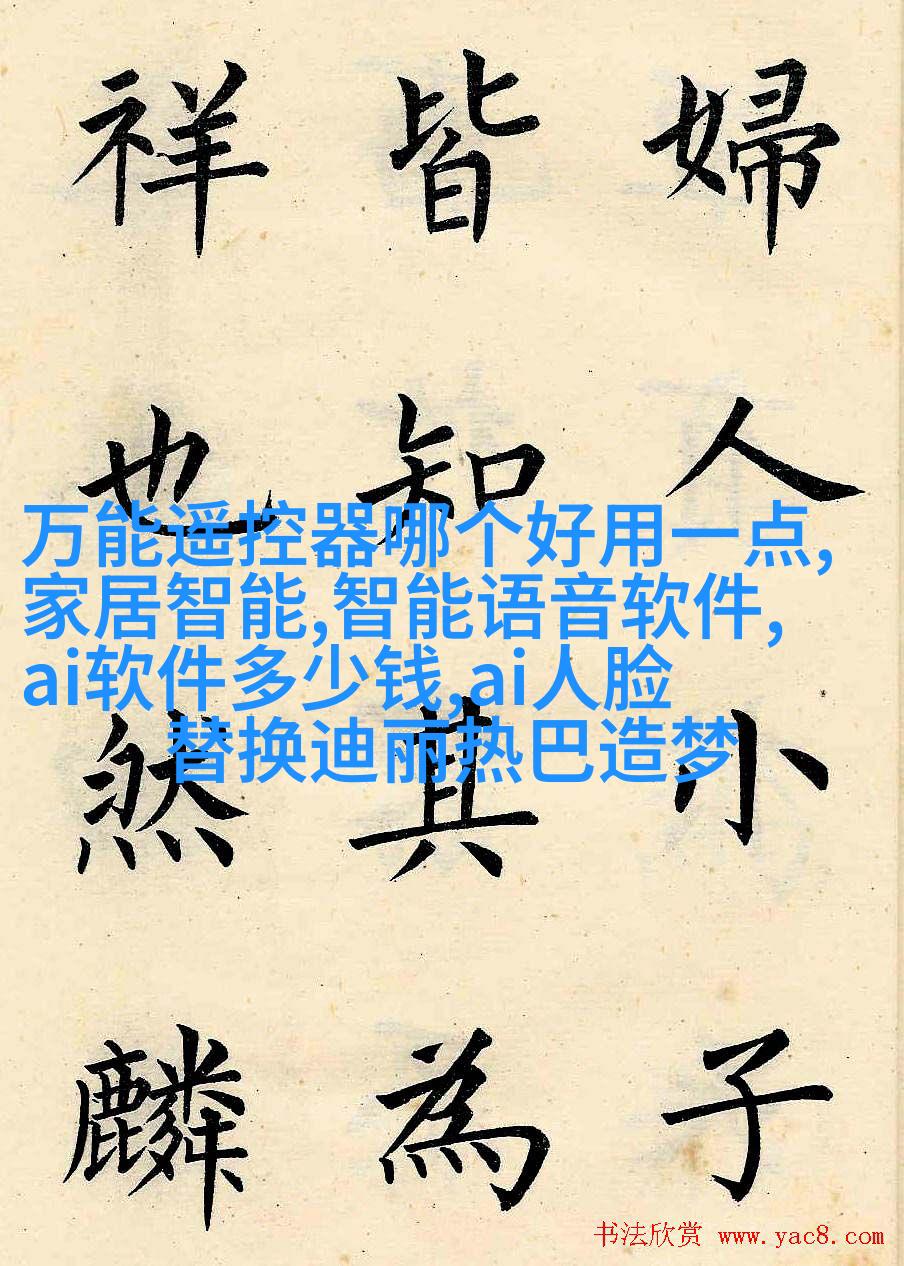 婦人小子
皆知其為
祥也然麟
万能遥控器哪个好用一点,
家居智能,智能语音软件,
ai软件多少钱,ai人脸
替换迪丽热巴造梦
书法欣赏 www.yac8.com